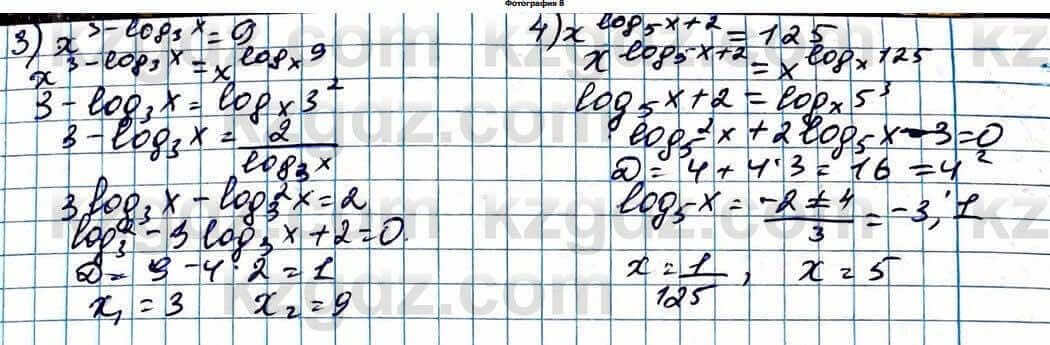 Фотография 8
3) x^{3-log₃x} = 9
x^{3-log₃x} = x^{logₓ9}
3 - log₃x = logₓ3²
3 - log₃x = 2/log₃x
3log₃x - log₃²x = 2
log₃² - 3log₃x + 2 = 0.
D = 9 - 4·2 = 1
x₁ = 3    x₂ = 9
4) x^{log₅x+2} = 125
x^{log₅x+2} = x^{logₓ125}
log₅x + 2 = logₓ5³
log₅²x + 2log₅x - 3 = 0
D = 4 + 4·3 = 16 = 4²
log₅x = (-2±4)/3 = -3; 1
x = 1/125, x = 5
kzgdz.com